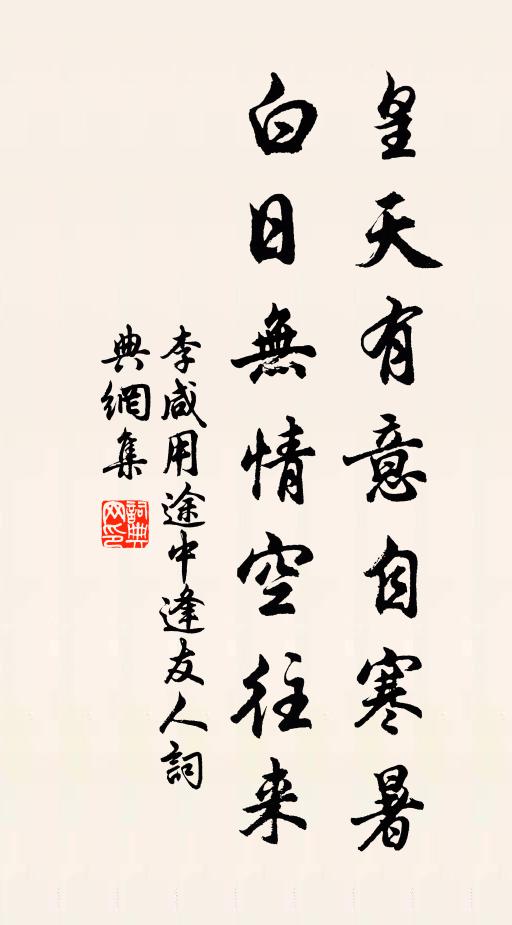 皇天有意自寒暑
白日無情空往来
李咸用途中逢友人詞
典網集
詞典网印